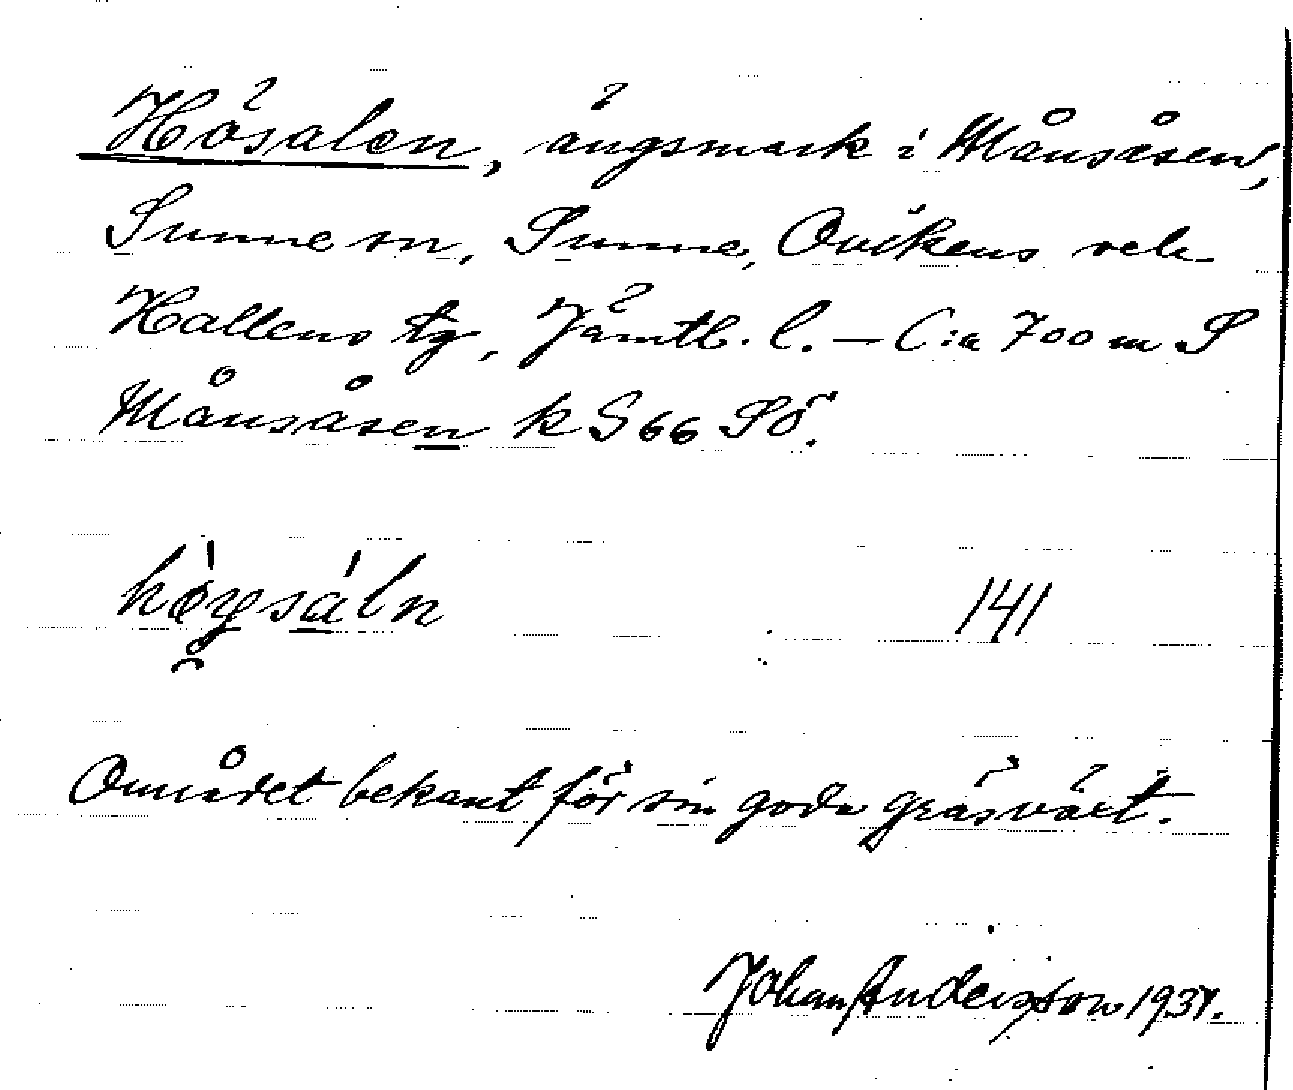 Hösalen, ängsmark i Månsåsen,
Sunne sn, Sunne, Ovikens och
Hallens tg, Jämtl. l. — C:a 700 m S
Månsåsen k S 66 SÖ.
141
Området bekant för sin goda gräsväxt.
Johan Andersson 1937.